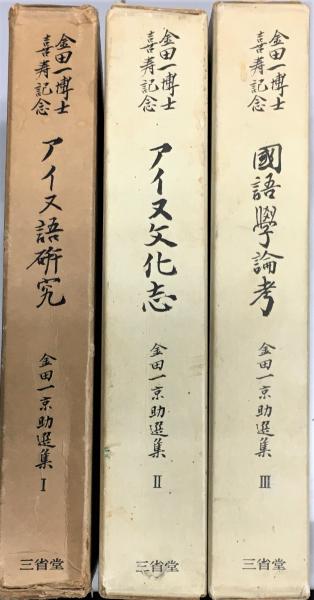 金田一博士
喜寿記念
アイヌ語研究
金田一京助選集 I
三省堂
金田一博士
喜寿記念
アイヌ文化志
金田一京助選集 II
三省堂
金田一博士
喜寿記念
國語學論考
金田一京助選集 III
三省堂